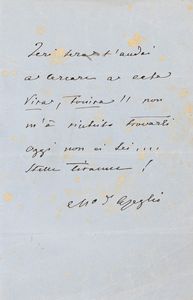 Jeri sera t'andai
a cercare a casa
Viva, !! non
m'à riuscito trovarti
oggi non ci sei...
stelle tiranne!
Mo d'Azeglio